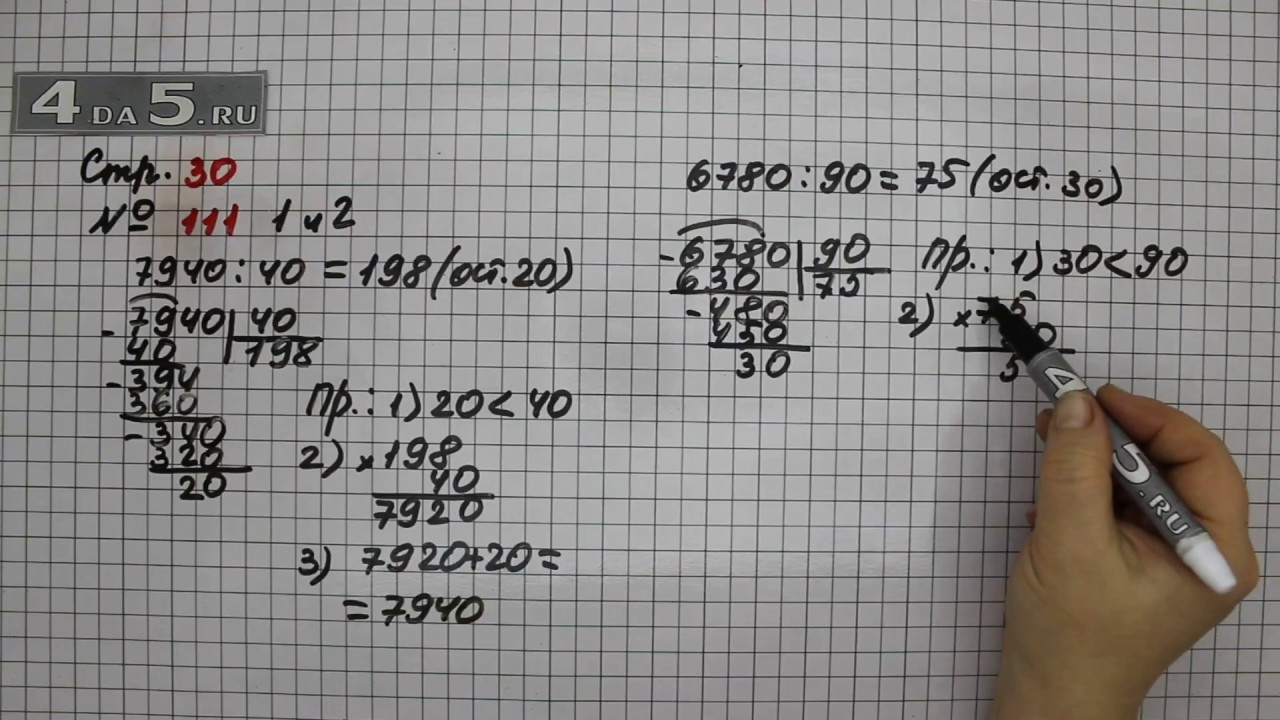 4 DA 5.RU
Стр. 30
№ 111 1 и 2
7940 : 40 = 198 (ост. 20)
- 7940 | 40
40 | 198
- 394
360
- 340
320
20
Пр.: 1) 20 < 40
2) × 198
40
7920
3) 7920+20=
= 7940
6780 : 90 = 75 (ост. 30)
- 6780 | 90
630 | 75
- 480
450
30
Пр.: 1) 30 < 90
2) × 75
0
5
4 5.RU